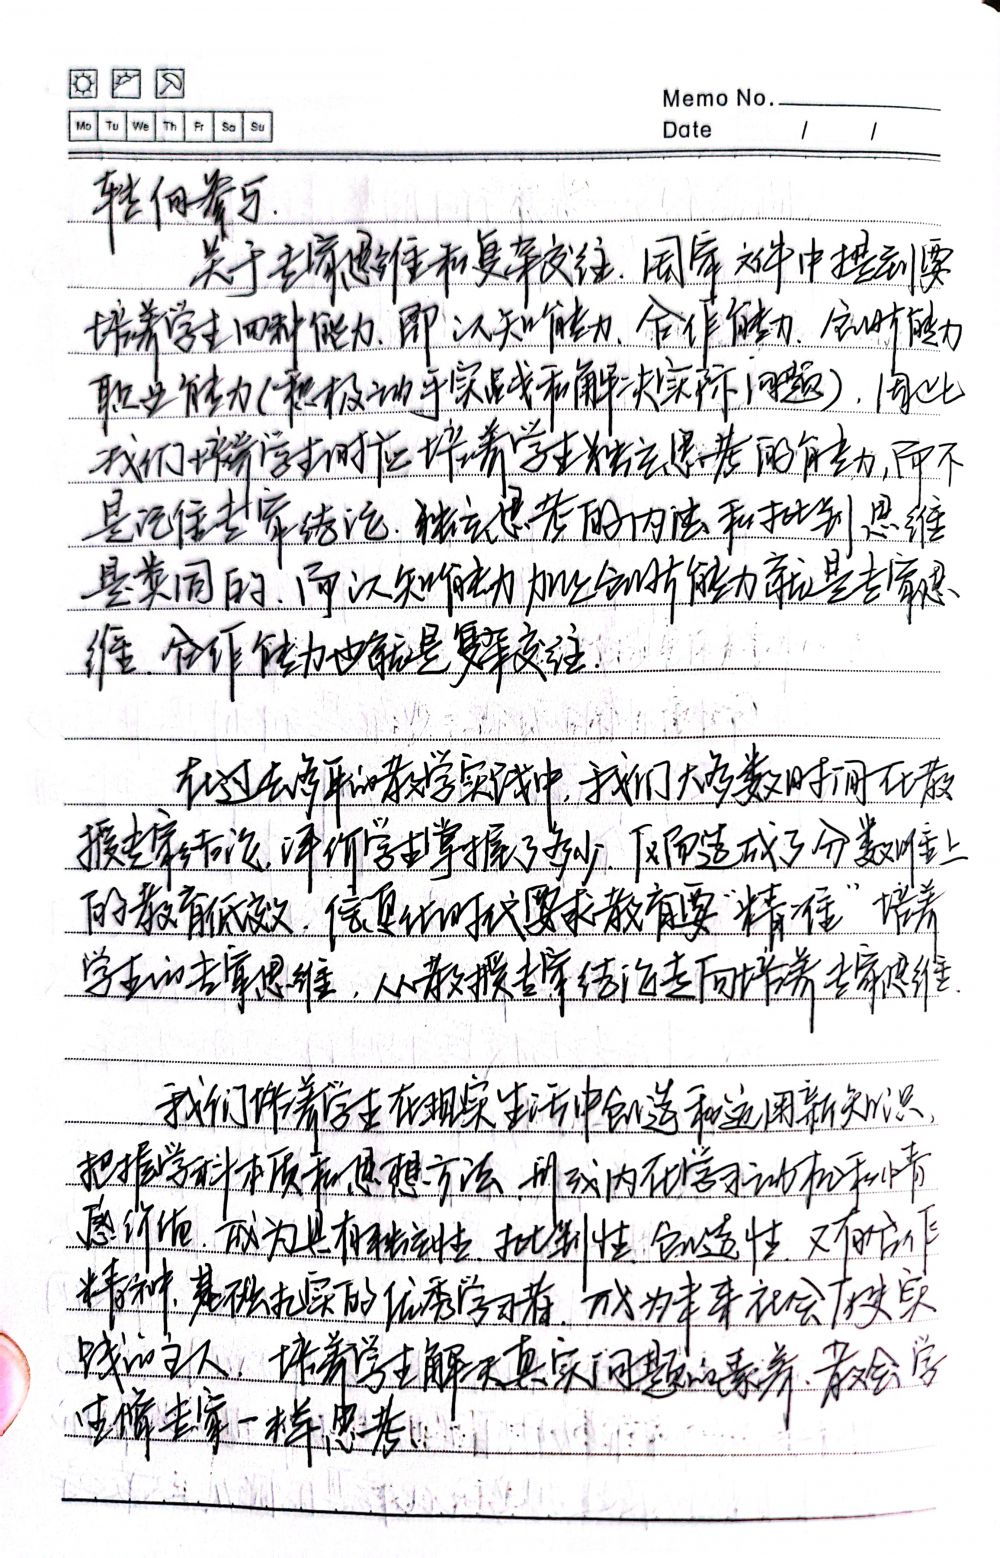 Memo No.
Mo Tu We Th Fr Sa Su
Date / /
转向参与.
关于专家思维和复杂交往.国家文件中提到要
培养学生四种能力.即认知能力.合作能力.创新能力
职业能力(积极动手实践和解决实际问题).因此
我们培养学生时应培养学生独立思考的能力,而不
是记住专家结论.独立思考的内涵和批判思维
是类同的.而认知能力加上创新能力就是专家思
维.合作能力也就是复杂交往.
在过去多年的教学实践中,我们大多数时间在教
授专家结论.评价学生掌握了多少,从而造成了分数难上
的教育低效.信息化时代要求教育要"精准"培养
学生的专家思维,从教授专家结论走向培养专家思维.
我们培养学生在现实生活中创造和运用新知识,
把握学科本质和思想方法,形成内在学习动机和情
感价值.成为具有独立性.批判性.创造性.又有合作
精神.基础扎实的优秀学习者.成为未来社会历史实
践的主人.培养学生解决真实问题的素养.教会学
生像专家一样思考!